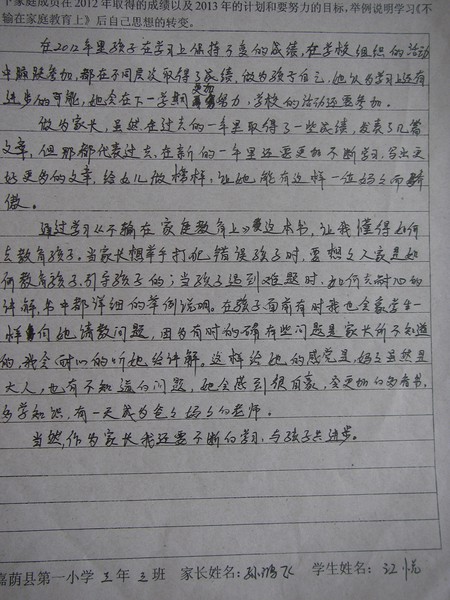 下家庭成员在2012年取得的成绩以及2013年的计划和要努力的目标,举例说明学习《不
输在家庭教育上》后自己思想的转变。
在2012年里孩子在学习上保持不变的成绩,在学校组织的活动
中踊跃参加,都在不同层次取得了成绩,做为孩子自己,她认为学习上还有
进步的可能,她会在下一学期更加努力,学校的活动还要参加。
做为家长,虽然在过去的一年里取得了一些成绩,发表了几篇
文章,但那都代表过去,在新的一年里还要更加不断学习,写出更
好更多的文章,给女儿做榜样,让她能有这样一位妈妈而骄
傲。
通过学习《不输在家庭教育上》这本书,让我懂得如何
去教育孩子。当家长想举手打犯错误孩子时,要想想人家是如
何教育孩子,引导孩子的;当孩子遇到难题时,如何去耐心的
讲解,书中都详细的举例说明。在孩子面前有时我也会象学生一
样向她请教问题,因为有时的确有些问题是家长所不知道
的,我会耐心的听她给讲解。这样给她的感觉是,妈妈虽然是
大人,也有不知道的问题,她会感到很自豪,会更加的多看书,
多学知识,有一天成为爸爸妈妈的老师。
当然,作为家长我还要不断的学习,与孩子共进步。
嘉荫县第一小学 三年 三班 家长姓名:孙鸿飞 学生姓名:江悦